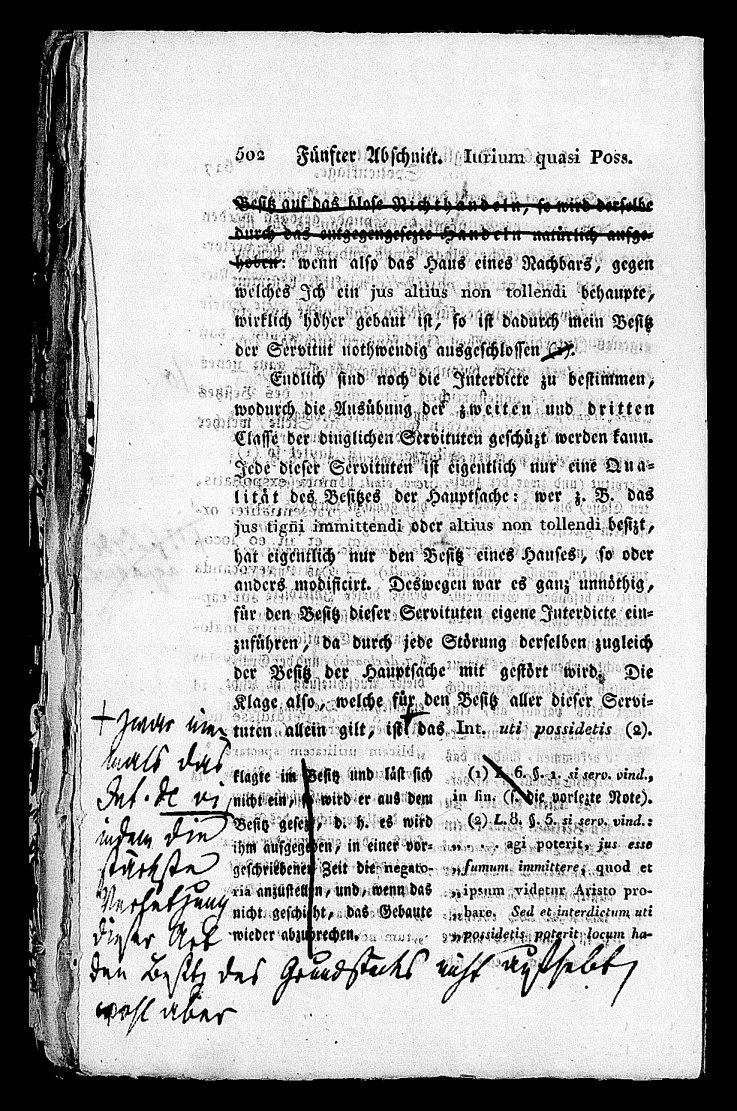 502 Fünfter Abschnitt. Iurium quasi Poss.
Besitz auf das blose Nichthandeln, so wird derselbe
durch das entgegengesezte Handeln natürlich aufge-
hoben: wenn also das Haus eines Nachbars, gegen
welches Ich ein jus altius non tollendi behaupte,
wirklich höher gebaut ist, so ist dadurch mein Besitz
der Servitut nothwendig ausgeschlossen (1).
Endlich sind noch die Interdicte zu bestimmen,
wodurch die Ausübung der zweiten und dritten
Classe der dinglichen Servituten geschüzt werden kann.
Jede dieser Servituten ist eigentlich nur eine Qua-
lität des Besitzes der Hauptsache: wer z. B. das
jus tigni immittendi oder altius non tollendi besizt,
hat eigentlich nur den Besitz eines Hauses, so oder
anders modificirt. Deswegen war es ganz unnöthig,
für den Besitz dieser Servituten eigene Interdicte ein-
zuführen, da durch jede Störung derselben zugleich
der Besitz der Hauptsache mit gestört wird. Die
Klage also, welche für den Besitz aller dieser Servi-
tuten allein gilt, ist + das Int. uti possidetis (2).
klagte im Besitz und läst sich
nicht ein, so wird er aus dem
Besitz gesezt, d. h. es wird
ihm aufgegeben, in einer vor-
geschriebenen Zeit die negato-
ria anzustellen, und, wenn das
nicht geschieht, das Gebaute
wieder abzubrechen.
(1) L. 6. §. 1. si serv. vind.,
in fin. (s. die vorlezte Note).
(2) L. 8. §. 5. si serv. vind.:
„ . . . . agi poterit, jus esse
„fumum immittere, quod et
„ipsum videtur Aristo pro-
„bare. Sed et interdictum uti
„possidetis poterit locum ha-
+ zwar nie-
mals das
Int. de vi,
indem die
stärkste
Verletzung
dieser Art
den Besitz des Grundstücks nicht aufhebt,
wohl aber